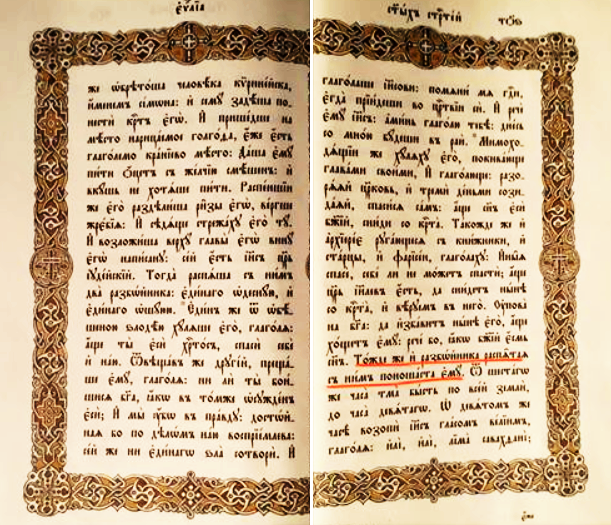 є҆ѵⷢ҇лїа
же ѡ҆брѣто́ша человѣ́ка кѷрине́йска,
и҆́менемъ сі́мѡна: и҆ семꙋ̀ задѣ́ша по-
нестѝ крⷭ҇тъ є҆гѡ̀. И҆ прише́дше на
мѣ́сто нарица́емое голго́ѳа, є҆́же є҆́сть
глаго́лемо кра́нїево мѣ́сто: Да́ша є҆мꙋ̀
пи́ти ѻ҆́цетъ съ же́лчїю смѣ́шенъ: и҆
вкꙋ́шь не хотѧ́ше пи́ти. Распе́ншїи
же є҆го̀ раздѣли́ша ри̑зы є҆гѡ̀, ве́ргше
жрє́бїѧ: И҆ сѣдѧ́ще стрежа́хꙋ є҆го̀ тꙋ̀.
И҆ возложи́ша верхꙋ̀ главы̀ є҆гѡ̀ винꙋ̀
є҆гѡ̀ напи́санꙋ: се́й є҆́сть і҆и҃съ цр҃ь
і҆ꙋде́йскїй. Тогда̀ распѧ́ша съ ни́мъ
два̀ разбѡ́йника: є҆ди́наго ѡ҆деснꙋ́ю, и҆
є҆ди́наго ѡ҆шꙋ́юю. Є҆ди́нъ же ѿ ѡ҆бѣ́-
шєною ѕлодѣ̑ю хꙋ́лѧше є҆го̀, глаго́лѧ:
а҆́ще ты̀ є҆сѝ хрⷭ҇то́съ, спасѝ себѐ
и҆ на́ю. Ѿвѣща́въ же дрꙋгі́й, преща́-
ше є҆мꙋ̀, глаго́лѧ: ни лѝ ты̀ бои́-
шисѧ бг҃а, ꙗ҆́кѡ въ то́мже ѡ҆сꙋжде́нъ
є҆сѝ; И҆ мы̀ ᲂу҆́бѡ въ пра́вдꙋ: достѡ́й-
наѧ бо по дѣлѡ́мъ на́ю воспрїе́млева:
се́й же ни є҆ди́нагѡ ѕла̀ сотворѝ. И҆
ст҃ы́хъ стрⷭ҇те́й
тѯѳ
глаго́лаше і҆и҃сови: помѧнѝ мѧ̀ гдⷭ҇и,
є҆гда̀ прїи́деши во црⷭ҇твїи сѝ. И҆ речѐ
є҆мꙋ̀ і҆и҃съ: а҆ми́нь глаго́лю тебѣ̀: дне́сь
со мно́ю бꙋ́деши въ раѝ. Мимохо-
дѧ́щїи же хꙋ́лѧхꙋ є҆го̀, покива́юще
глава́ми свои́ми, И҆ глаго́люще: разо-
рѧ́ѧй цр҃ковь, и҆ тремѝ де́ньми сози-
да́ѧй, спаси́сѧ са́мъ: а҆́ще сн҃ъ є҆сѝ
бж҃їй, сни́ди со крⷭ҇та̀. Та́кожде же и҆
а҆рхїере́є рꙋга́ющесѧ съ кни́жники, и҆
ста́рцы, и҆ фарїсє́и, глаго́лахꙋ: И҆ны̑ѧ
спасѐ, себе́ ли не мо́жетъ спастѝ; а҆́ще
цр҃ь і҆и҃левъ є҆́сть, да сни́детъ нн҃ѣ
со крⷭ҇та̀, и҆ вѣ́рꙋемъ въ него̀. Оу҆пова̀
на бг҃а: да и҆зба́витъ нн҃ѣ є҆го̀, а҆́ще
хо́щетъ є҆мꙋ̀: рече́ бо, ꙗ҆́кѡ бж҃їй є҆́смь
сн҃ъ. То́жде же и҆ разбѡ́йника распѧ̑таѧ
съ ни́мъ поноша́ста є҆мꙋ̀. Ѿ шеста́гѡ
же часа̀ тма̀ бы́сть по все́й землѝ,
до часа̀ девѧ́тагѡ. Ѡ҆ девѧ́томъ же
часѣ̀ возопѝ і҆и҃съ гла́сомъ ве́лїимъ,
глаго́лѧ: и҆лѝ, и҆лѝ, лїма̀ савахѳанѝ;